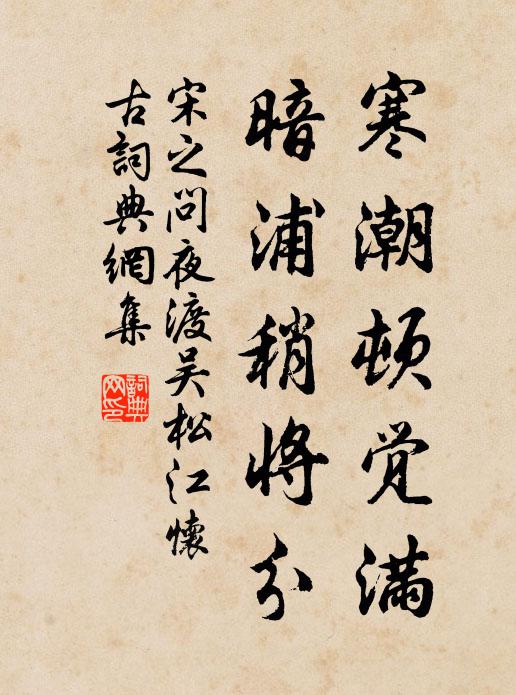 寒潮頓觉滿
暗浦稍將分
宋之问夜渡吴松江懷
古詞典網集
詞典
网印